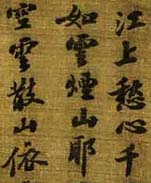 江上愁心千
如雲煙山耶
空雲散山依